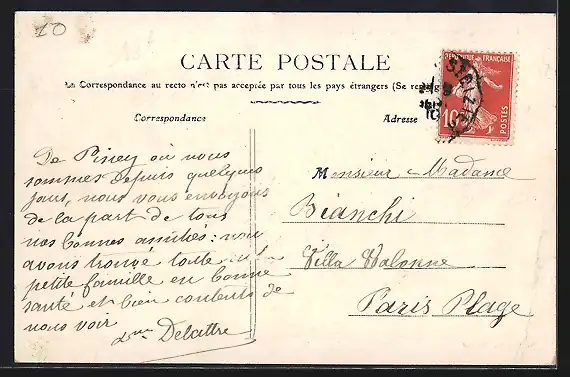 10
CARTE POSTALE
La Correspondance au recto n'est pas acceptée par tous les pays étrangers (Se
Correspondance
Adresse
REPUBLIQUE FRANÇAISE
10
POSTES
De Piney où nous
sommes depuis quelques
jours, nous vous envoyons
de la part de tous
nos bonnes amitiés : nous
avons trouvé toute la
petite famille en bonne
santé et bien contents de
nous voir
Delattre
Monsieur Madame
Bianchi
Villa Valonne
Paris Plage